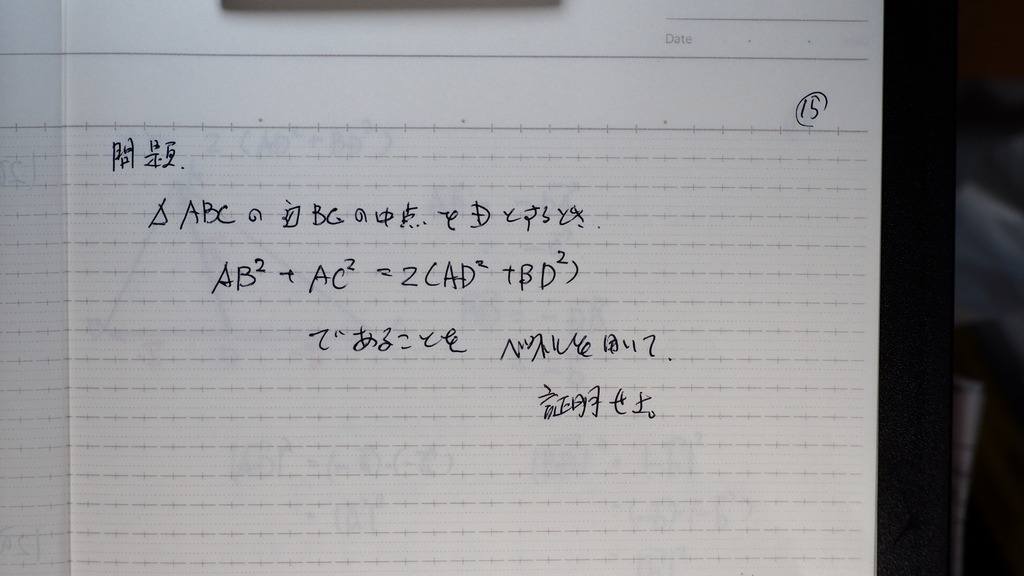 Date
⑮
問題.
△ABCの辺BCの中点をDとするとき.
AB² + AC² = 2(AD² + BD²)
であることを ベクトルを用いて.
証明せよ。